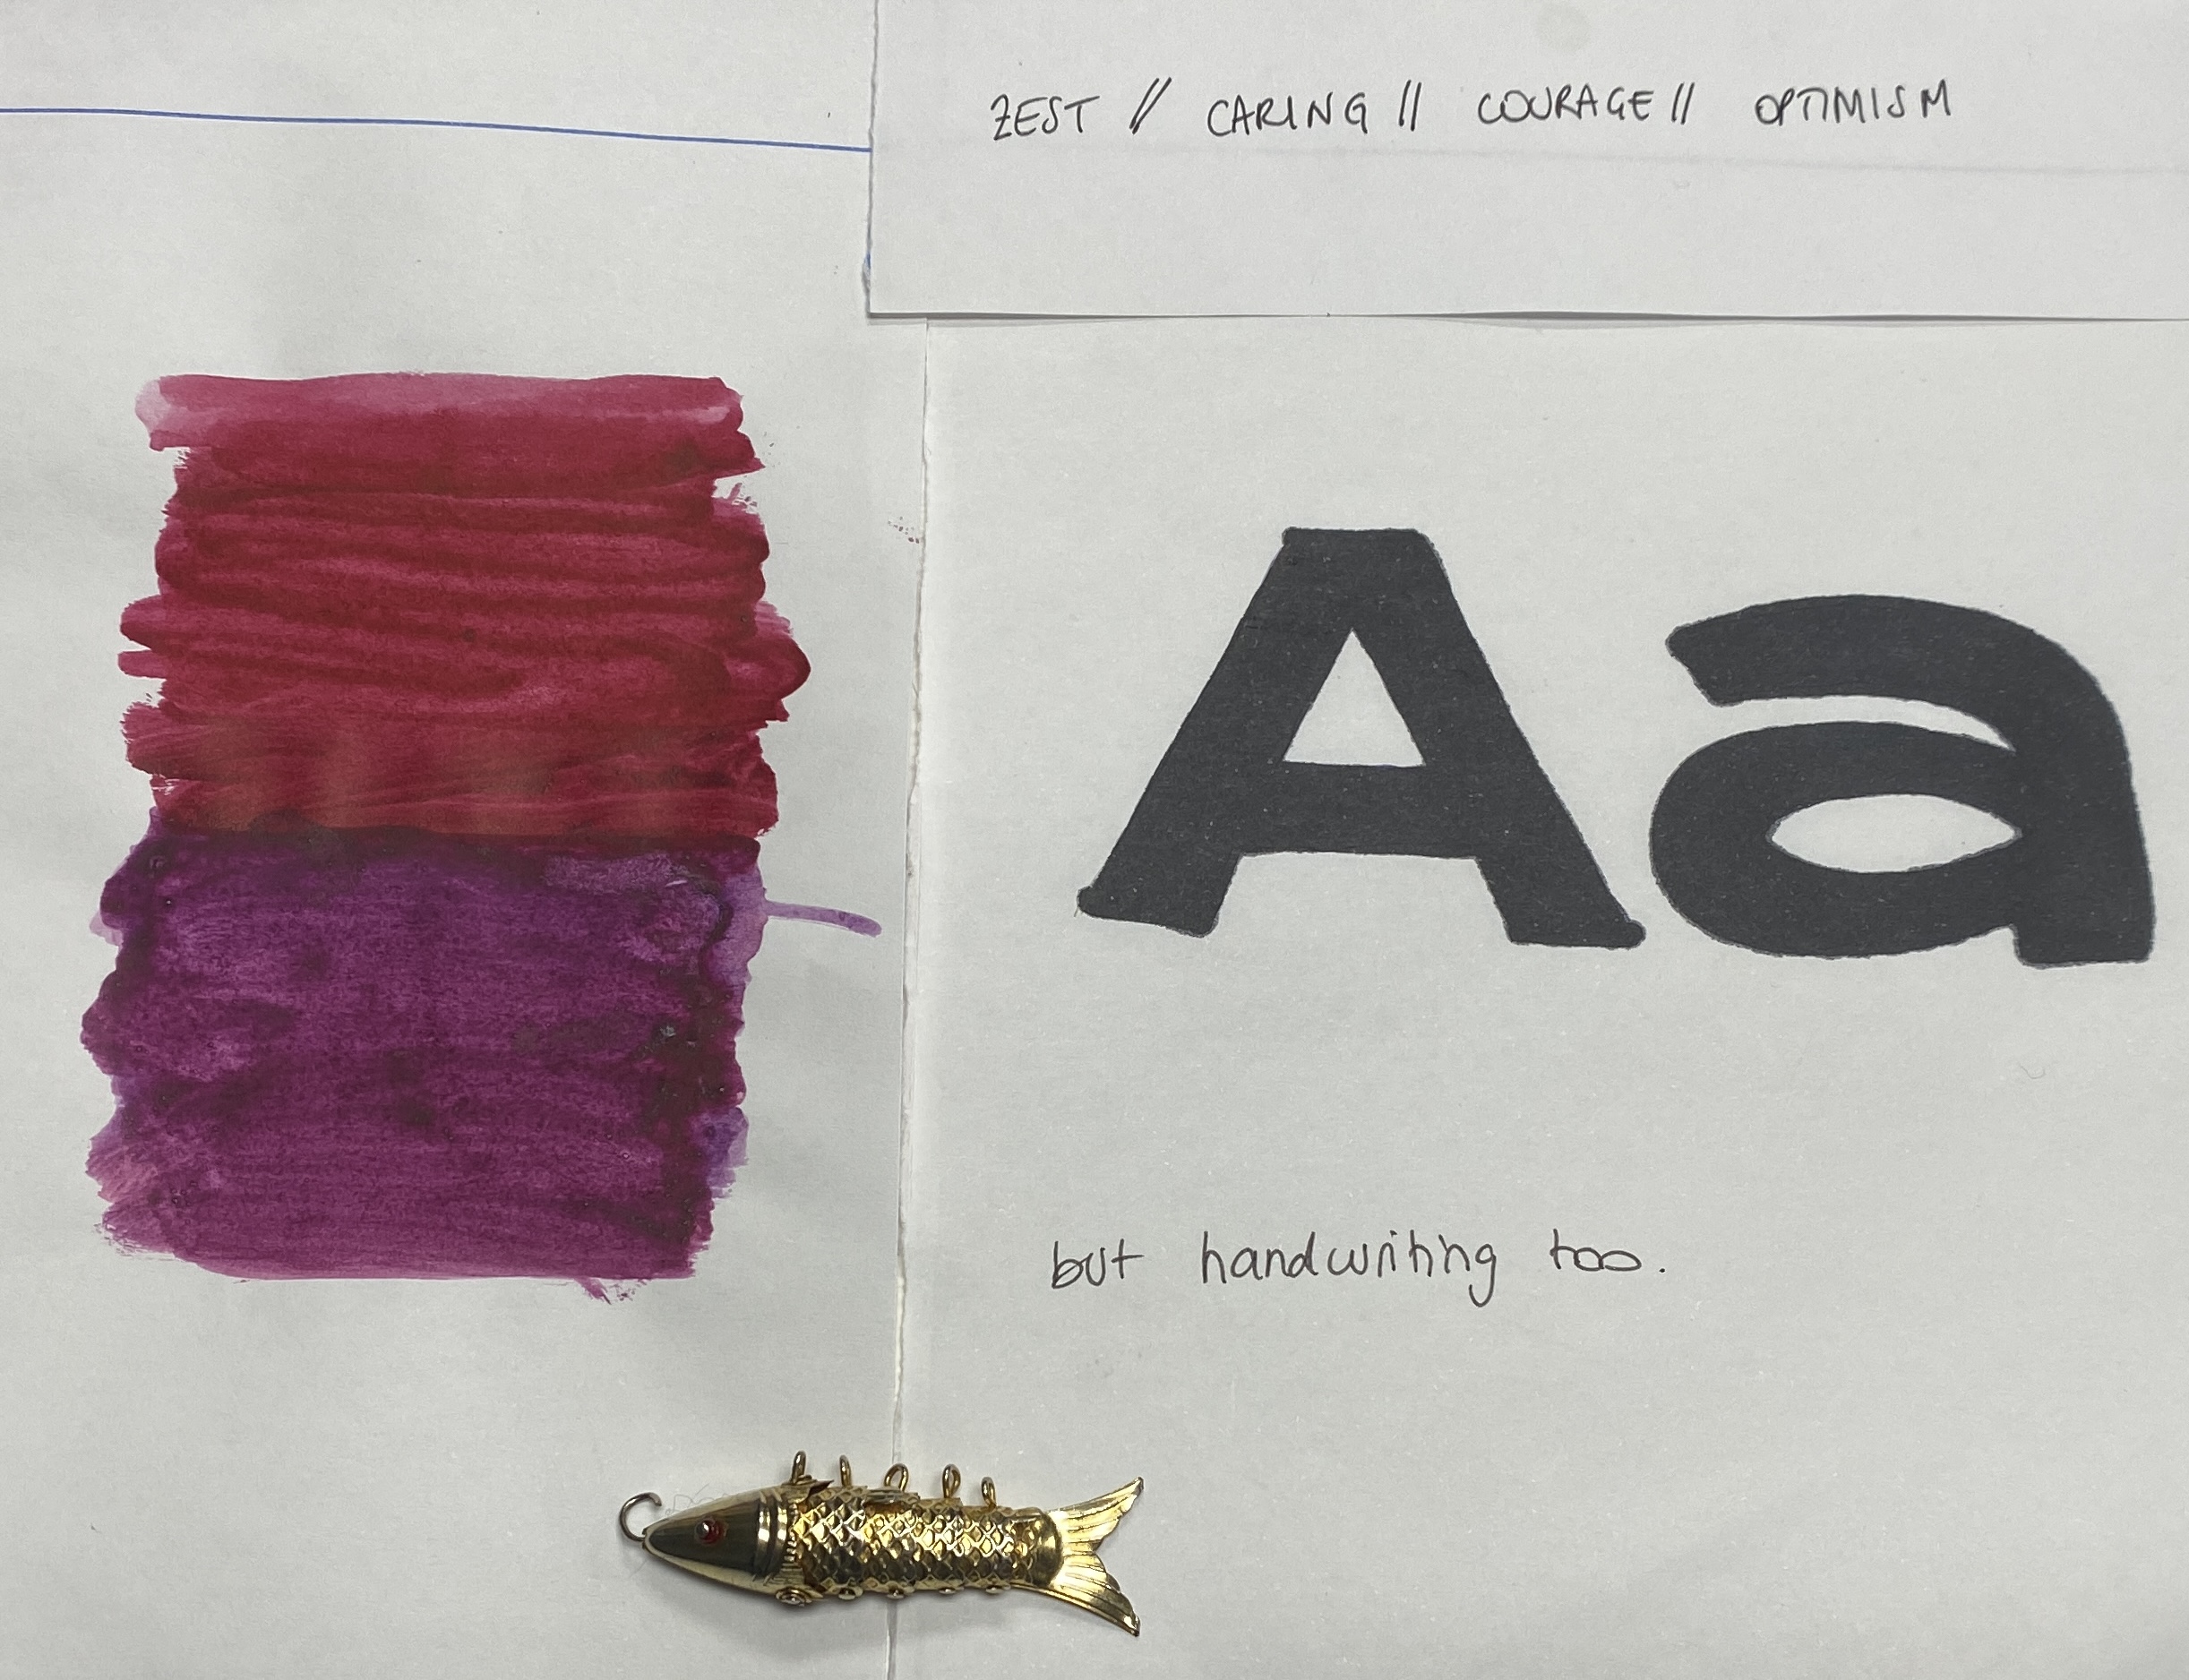 ZEST // CARING // COURAGE // OPTIMISM
Aa
but handwriting too.